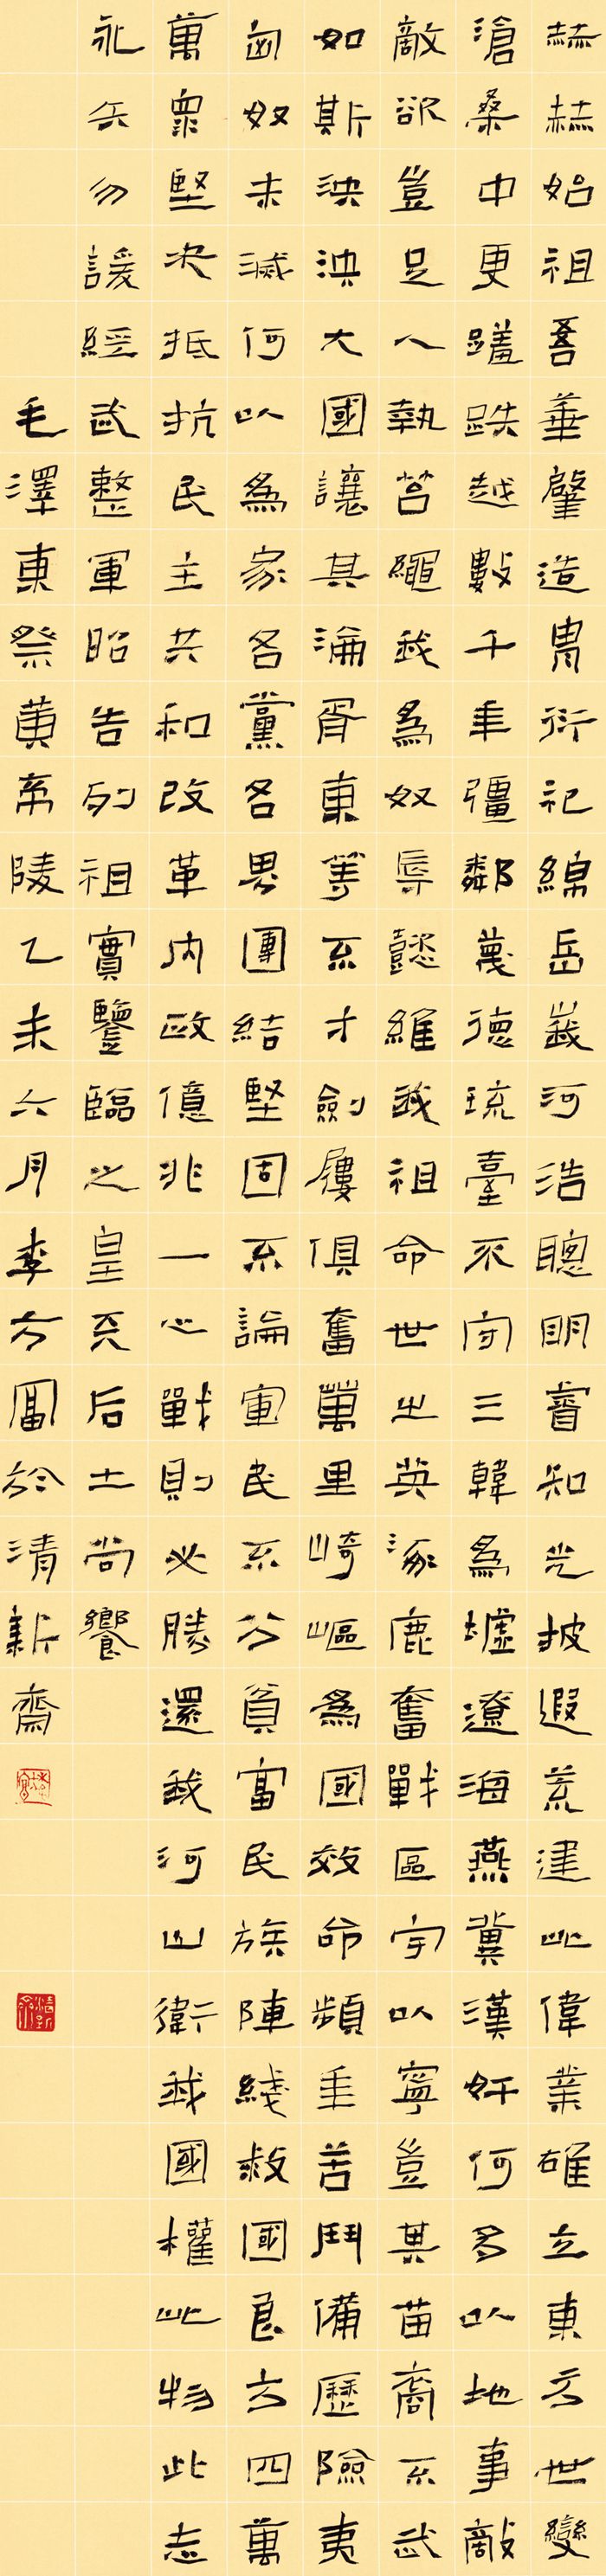 赫赫始祖吾華肇造胄衍祀綿岳峩河浩聰明睿知光披遐荒建此偉業雄立東方世變
滄桑中更蹉跌越數千年彊鄰蔑德琉臺不守三韓為墟遼海燕冀漢奸何多以地事敵
敵欲豈足人執笞繩我為奴辱懿維我祖命世之英涿鹿奮戰區宇以寧豈其苗裔不武
如斯泱泱大國讓其淪胥東等不才劍屨俱奮萬里崎嶇為國效命頻年苦鬥備歷險夷
匈奴未滅何以為家各黨各界團結堅固不論軍民不分貧富民族陣綫救國良方四萬
萬眾堅決抵抗民主共和改革內政億兆一心戰則必勝還我河山衛我國權此物此志
永矢勿諼經武整軍昭告列祖實鑒臨之皇天后土尚饗
毛澤東祭黃帝陵乙未六月李方圖於清新齋